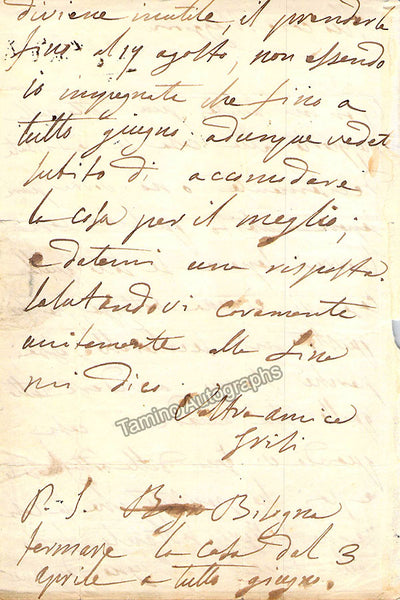 diviene inutile, il prenderla
fino al 19 agosto, non essendo
io impegnata che fino a
tutto giugno; adunque vedet
subito di accomodare
la cosa per il meglio;
e datemi una risposta.
Salutandovi caramente
unitamente alla
mi dico
Vostra amica
Grisi
P. S. Bisogna
fermare la casa dal 3
aprile a tutto giugno.
Tamino Autographs